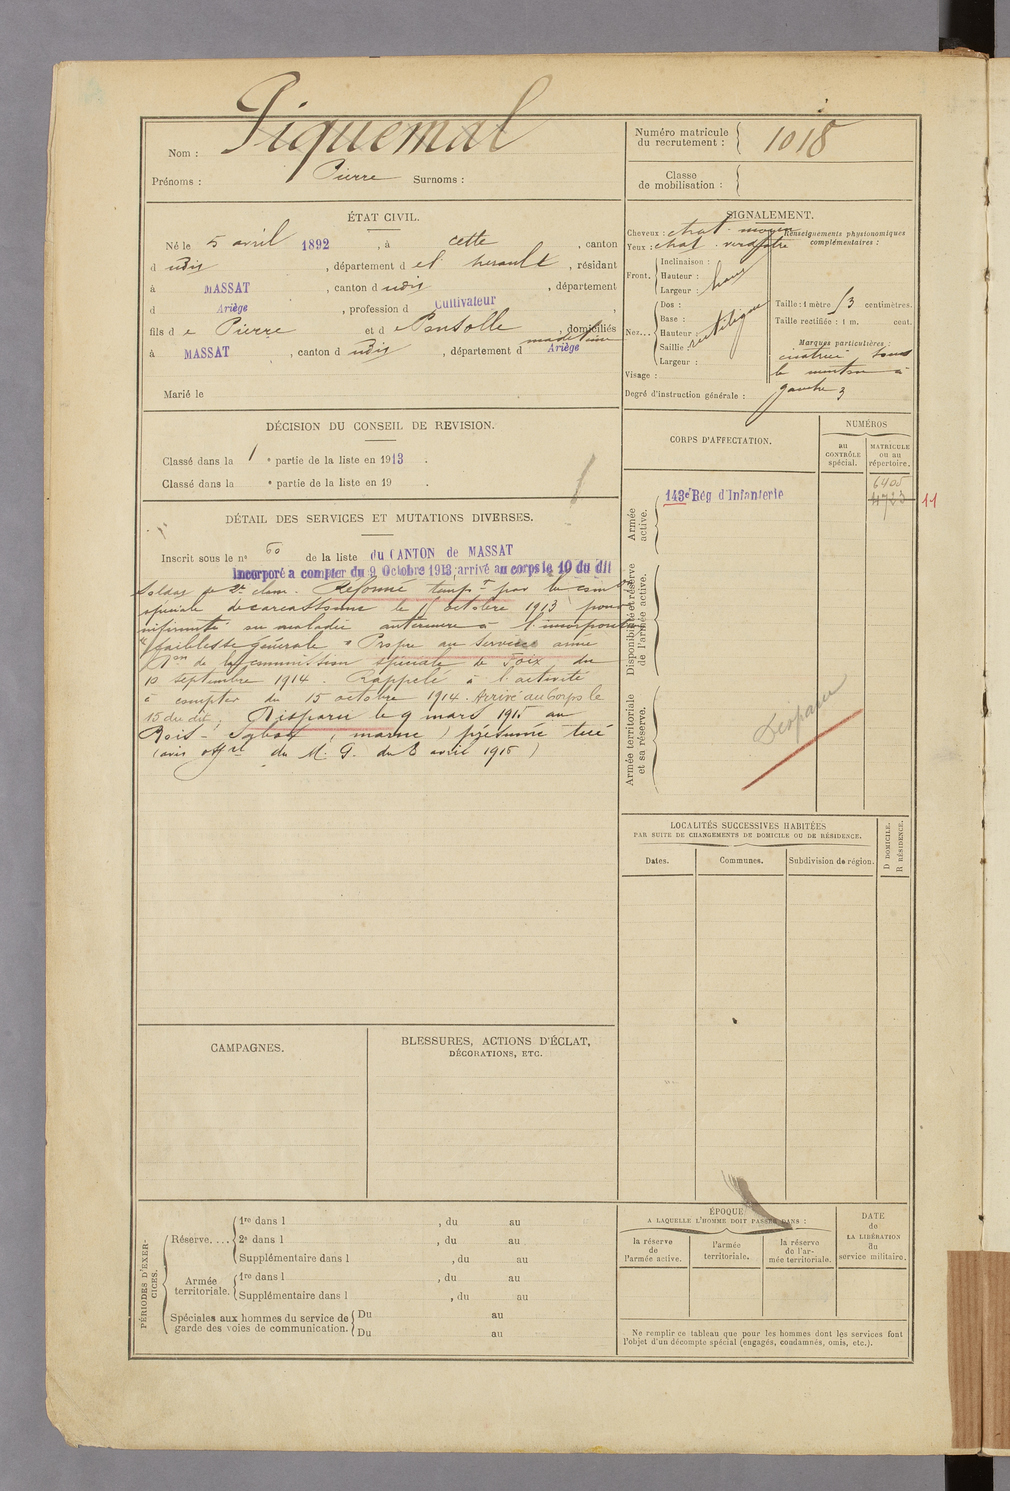 Piquemal
Nom :
Prénoms : Pierre Surnoms :
Numéro matricule
du recrutement : 1018
Classe
de mobilisation :
ÉTAT CIVIL.
Né le 5 avril 1892, à Cette, canton
d udis, département d el herault, résidant
à MASSAT, canton d udis, département
d Ariège, profession d Cultivateur,
fils d e Pierre et d e Pontolle madeleine, domiciliés
à MASSAT, canton d udis, département d Ariège
Marié le
SIGNALEMENT.
Cheveux : chat. moyen
Yeux : chat. verdatre
Front. Inclinaison :
Hauteur : haut
Largeur :
Nez... Dos : rectiligne
Base :
Hauteur :
Saillie :
Largeur :
Visage :
Degré d'instruction générale : 3
Renseignements physionomiques
complémentaires :
Taille : 1 mètre 53 centimètres.
Taille rectifiée : 1 m. cent.
Marques particulières :
cicatrice sous
le menton à
gauche
DÉCISION DU CONSEIL DE REVISION.
Classé dans la 1e partie de la liste en 1913.
Classé dans la e partie de la liste en 19 .
DÉTAIL DES SERVICES ET MUTATIONS DIVERSES.
Inscrit sous le n° 60 de la liste du CANTON de MASSAT
Incorporé a compter du 9 Octobre 1913, arrivé au corps le 10 du dit
Soldat de 2e classe. Réformé tempt par la comon
spéciale de carcassonne le 11 octobre 1913 pour
infirmité ou maladie antérieure à l'incorporation
"faiblesse générale" Propre au service armé
Don de la commission spéciale de Foix du
10 septembre 1914. Rappelé à l'activité
à compter du 15 octobre 1914. Arrivé au Corps le
15 du dit; Disparu le 9 mars 1915 au
Bois-Sabot, (marne) présumé tué
(avis offel du M. G. du 8 avril 1915)
CORPS D'AFFECTATION.
NUMÉROS
au
CONTRÔLE
spécial.
MATRICULE
ou au
répertoire.
Armée
active.
143e Rég d'Infanterie
6405
4723
11
Disponibilité et réserve
de l'armée active.
Armée territoriale
et sa réserve.
Disparu
LOCALITÉS SUCCESSIVES HABITÉES
PAR SUITE DE CHANGEMENTS DE DOMICILE OU DE RÉSIDENCE.
Dates.
Communes.
Subdivision de région.
D DOMICILE.
R RÉSIDENCE.
CAMPAGNES.
BLESSURES, ACTIONS D'ÉCLAT,
DÉCORATIONS, ETC.
PÉRIODES D'EXER-
CICES.
Réserve.... 1re dans l , du au
2e dans l , du au
Supplémentaire dans l , du au
Armée
territoriale. 1re dans l , du au
Supplémentaire dans l , du au
Spéciales aux hommes du service de
garde des voies de communication. Du au
Du au
ÉPOQUE
A LAQUELLE L'HOMME DOIT PASSER DANS :
la réserve
de
l'armée active.
l'armée
territoriale.
la réserve
de l'ar-
mée territoriale.
DATE
de
LA LIBÉRATION
du
service militaire.
Ne remplir ce tableau que pour les hommes dont les services font
l'objet d'un décompte spécial (engagés, condamnés, omis, etc.).